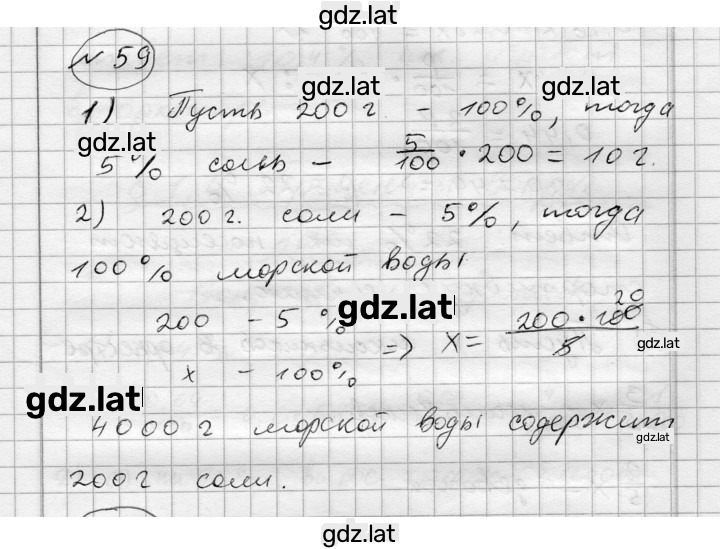 gdz.lat
№ 59
gdz.lat
1) Пусть 200 г. - 100%, тогда
gdz.lat gdz.lat
5% соль - 5/100 · 200 = 10 г.
2) 200 г. соли - 5%, тогда
100% морской воды
gdz.lat
200 - 5 % => x = 200 · 100 / 5 20
gdz.lat
x - 100%
gdz.lat
4000 г морской воды содержит
gdz.lat
200 г соли.
gdz.lat